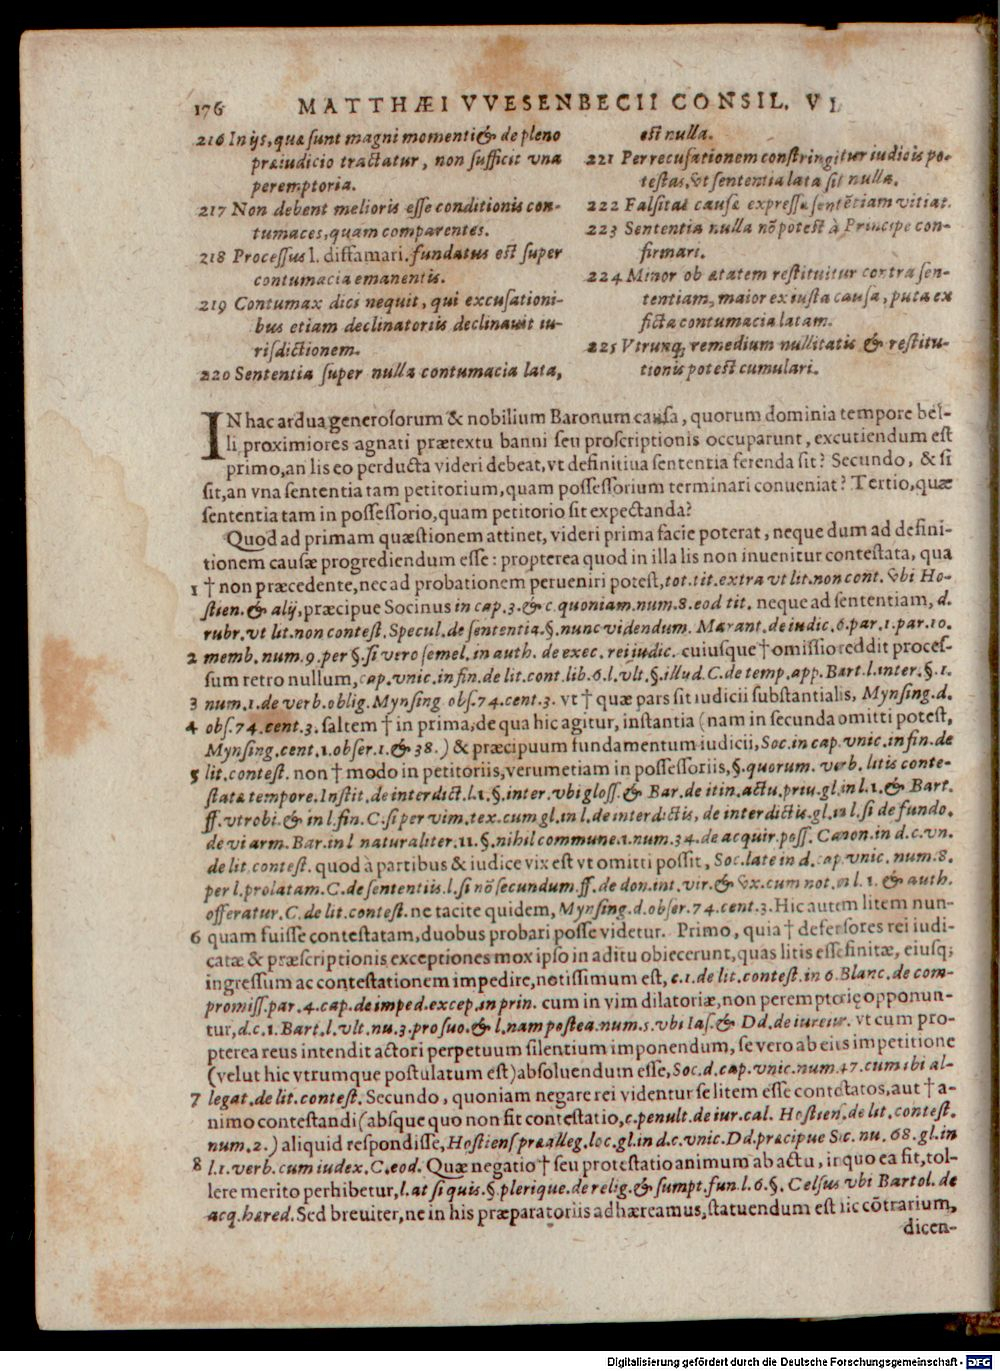 176 MATTHÆI VVESENBECII CONSIL. VI.
216 In ijs, quæ sunt magni momenti & de pleno
præiudicio tractatur, non sufficit vna
peremptoria.
217 Non debent melioris esse conditionis con-
tumaces, quam comparentes.
218 Processus l. diffamari. fundatus est super
contumacia emanentis.
219 Contumax dici nequit, qui excusationi-
bus etiam declinatoriis declinauit iu-
risdictionem.
220 Sententia super nulla contumacia lata,
est nulla.
221 Per recusationem constringitur iudicis po-
testas, vt sententia lata sit nulla.
222 Falsitas causæ expressæ sentētiam vitiat.
223 Sententia nulla nō potest à Principe con-
firmari.
224 Minor ob ætatem restituitur contra sen-
tentiam, maior ex iusta causa, puta ex
ficta contumacia latam.
225 Vtrunq; remedium nullitatis & restitu-
tionis potest cumulari.
IN hac ardua generosorum & nobilium Baronum causa, quorum dominia tempore bel-
li proximiores agnati prætextu banni seu proscriptionis occuparunt, excutiendum est
primo, an lis eo perducta videri debeat, vt definitiua sententia ferenda sit? Secundo, & si
sit, an vna sententia tam petitorium, quam possessorium terminari conueniat? Tertio, quæ
sententia tam in possessorio, quam petitorio sit expectanda?
Quod ad primam quæstionem attinet, videri prima facie poterat, neque dum ad defini-
tionem causæ progrediendum esse: propterea quod in illa lis non inuenitur contestata, qua
1 † non præcedente, nec ad probationem perueniri potest, tot. tit. extra vt lit. non cont. vbi Ho-
stien. & alij, præcipue Socinus in cap. 3. & c. quoniam. num. 8. eod tit. neque ad sententiam, d.
rubr. vt lit. non contest. Specul. de sententia. §. nunc videndum. Marant. de iudic. 6. par. 1. par. 10.
2 memb. num. 9. per §. si vero semel. in auth. de exec. rei iudic. cuiusque † omissio reddit proces-
sum retro nullum, cap. vnic. in fin. de lit. cont. lib. 6. l. vlt. §. illud. C. de temp. app. Bart. l. inter. §. 1.
3 num. 1. de verb. oblig. Mynsing obs. 74. cent. 3. vt † quæ pars sit iudicii substantialis, Mynsing. d.
4 obs. 74. cent. 3. saltem † in prima, de qua hic agitur, instantia (nam in secunda omitti potest,
Mynsing. cent. 1. obser. 1. & 38.) & præcipuum fundamentum iudicii, Soc. in cap. vnic. in fin. de
5 lit. contest. non † modo in petitoriis, verumetiam in possessoriis, §. quorum. verb. litis conte-
statæ tempore. Instit. de interdict. l. 1. §. inter. vbi gloss. & Bar. de itin. actu. priu. gl. in l. 1. & Bart.
ff. vtrobi. & in l. fin. C. si per vim. tex. cum gl. in l. de interdictis, de interdictis. gl. in l. si de fundo.
de vi arm. Bar. in l naturaliter. 11. §. nihil commune. 1. num. 34. de acquir. poss. Canon. in d. c. vn.
de lit. contest. quod à partibus & iudice vix est vt omitti possit, Soc. late in d. cap. vnic. num. 8.
per l. prolatam. C. de sententiis. l. si nō secundum. ff. de don. int. vir. & vx. cum not. in l. 1. & auth.
offeratur. C. de lit. contest. ne tacite quidem, Mynsing. d. obser. 74. cent. 3. Hic autem litem nun-
6 quam fuisse contestatam, duobus probari posse videtur. Primo, quia † defensores rei iudi-
catæ & præscriptionis exceptiones mox ipso in aditu obiecerunt, quas litis esse finitæ, eiusq;
ingressum ac contestationem impedire, notissimum est, c. 1. de lit. contest. in 6. Blanc. de com-
promiss. par. 4. cap. de imped. excep. in prin. cum in vim dilatoriæ, non peremptorię opponun-
tur, d. c. 1. Bart. l. vlt. nu. 3. pro suo. & l. nam postea. num. 5. vbi Ias. & Dd. de iureiur. vt cum pro-
pterea reus intendit actori perpetuum silentium imponendum, se vero ab eius impetitione
(velut hic vtrumque postulatum est) absoluendum esse, Soc. d. cap. vnic. num. 47. cum ibi al-
7 legat. de lit. contest. Secundo, quoniam negare rei videntur se litem esse contestatos, aut † a-
nimo contestandi (absque quo non fit contestatio, c. penult. de iur. cal. Hostiens. de lit. contest.
num. 2.) aliquid respondisse, Hostiens præalleg. loc. gl. in d. c. vnic. Dd. præcipue Soc. nu. 68. gl. in
8 l. 1. verb. cum iudex. C. eod. Quæ negatio † seu protestatio animum ab actu, in quo ea fit, tol-
lere merito perhibetur, l. at si quis. §. plerique. de relig. & sumpt. fun. l. 6. §. Celsus vbi Bartol. de
acq. hæred. Sed breuiter, ne in his præparatoriis adhæreamus, statuendum est hic cōtrarium,
dicen-
Digitalisierung gefördert durch die Deutsche Forschungsgemeinschaft - DFG